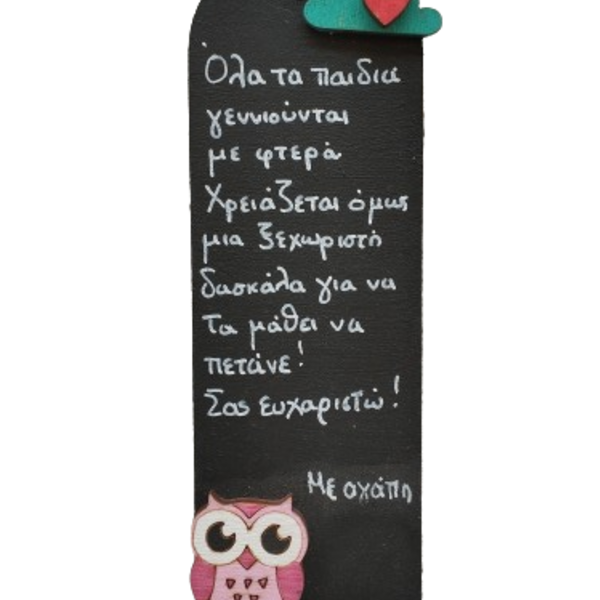 Όλα τα παιδιά
γεννιούνται
με φτερά
Χρειάζεται όμως
μια ξεχωριστή
δασκάλα για να
τα μάθει να
πετάνε!
Σας ευχαριστώ!
Με αγάπη